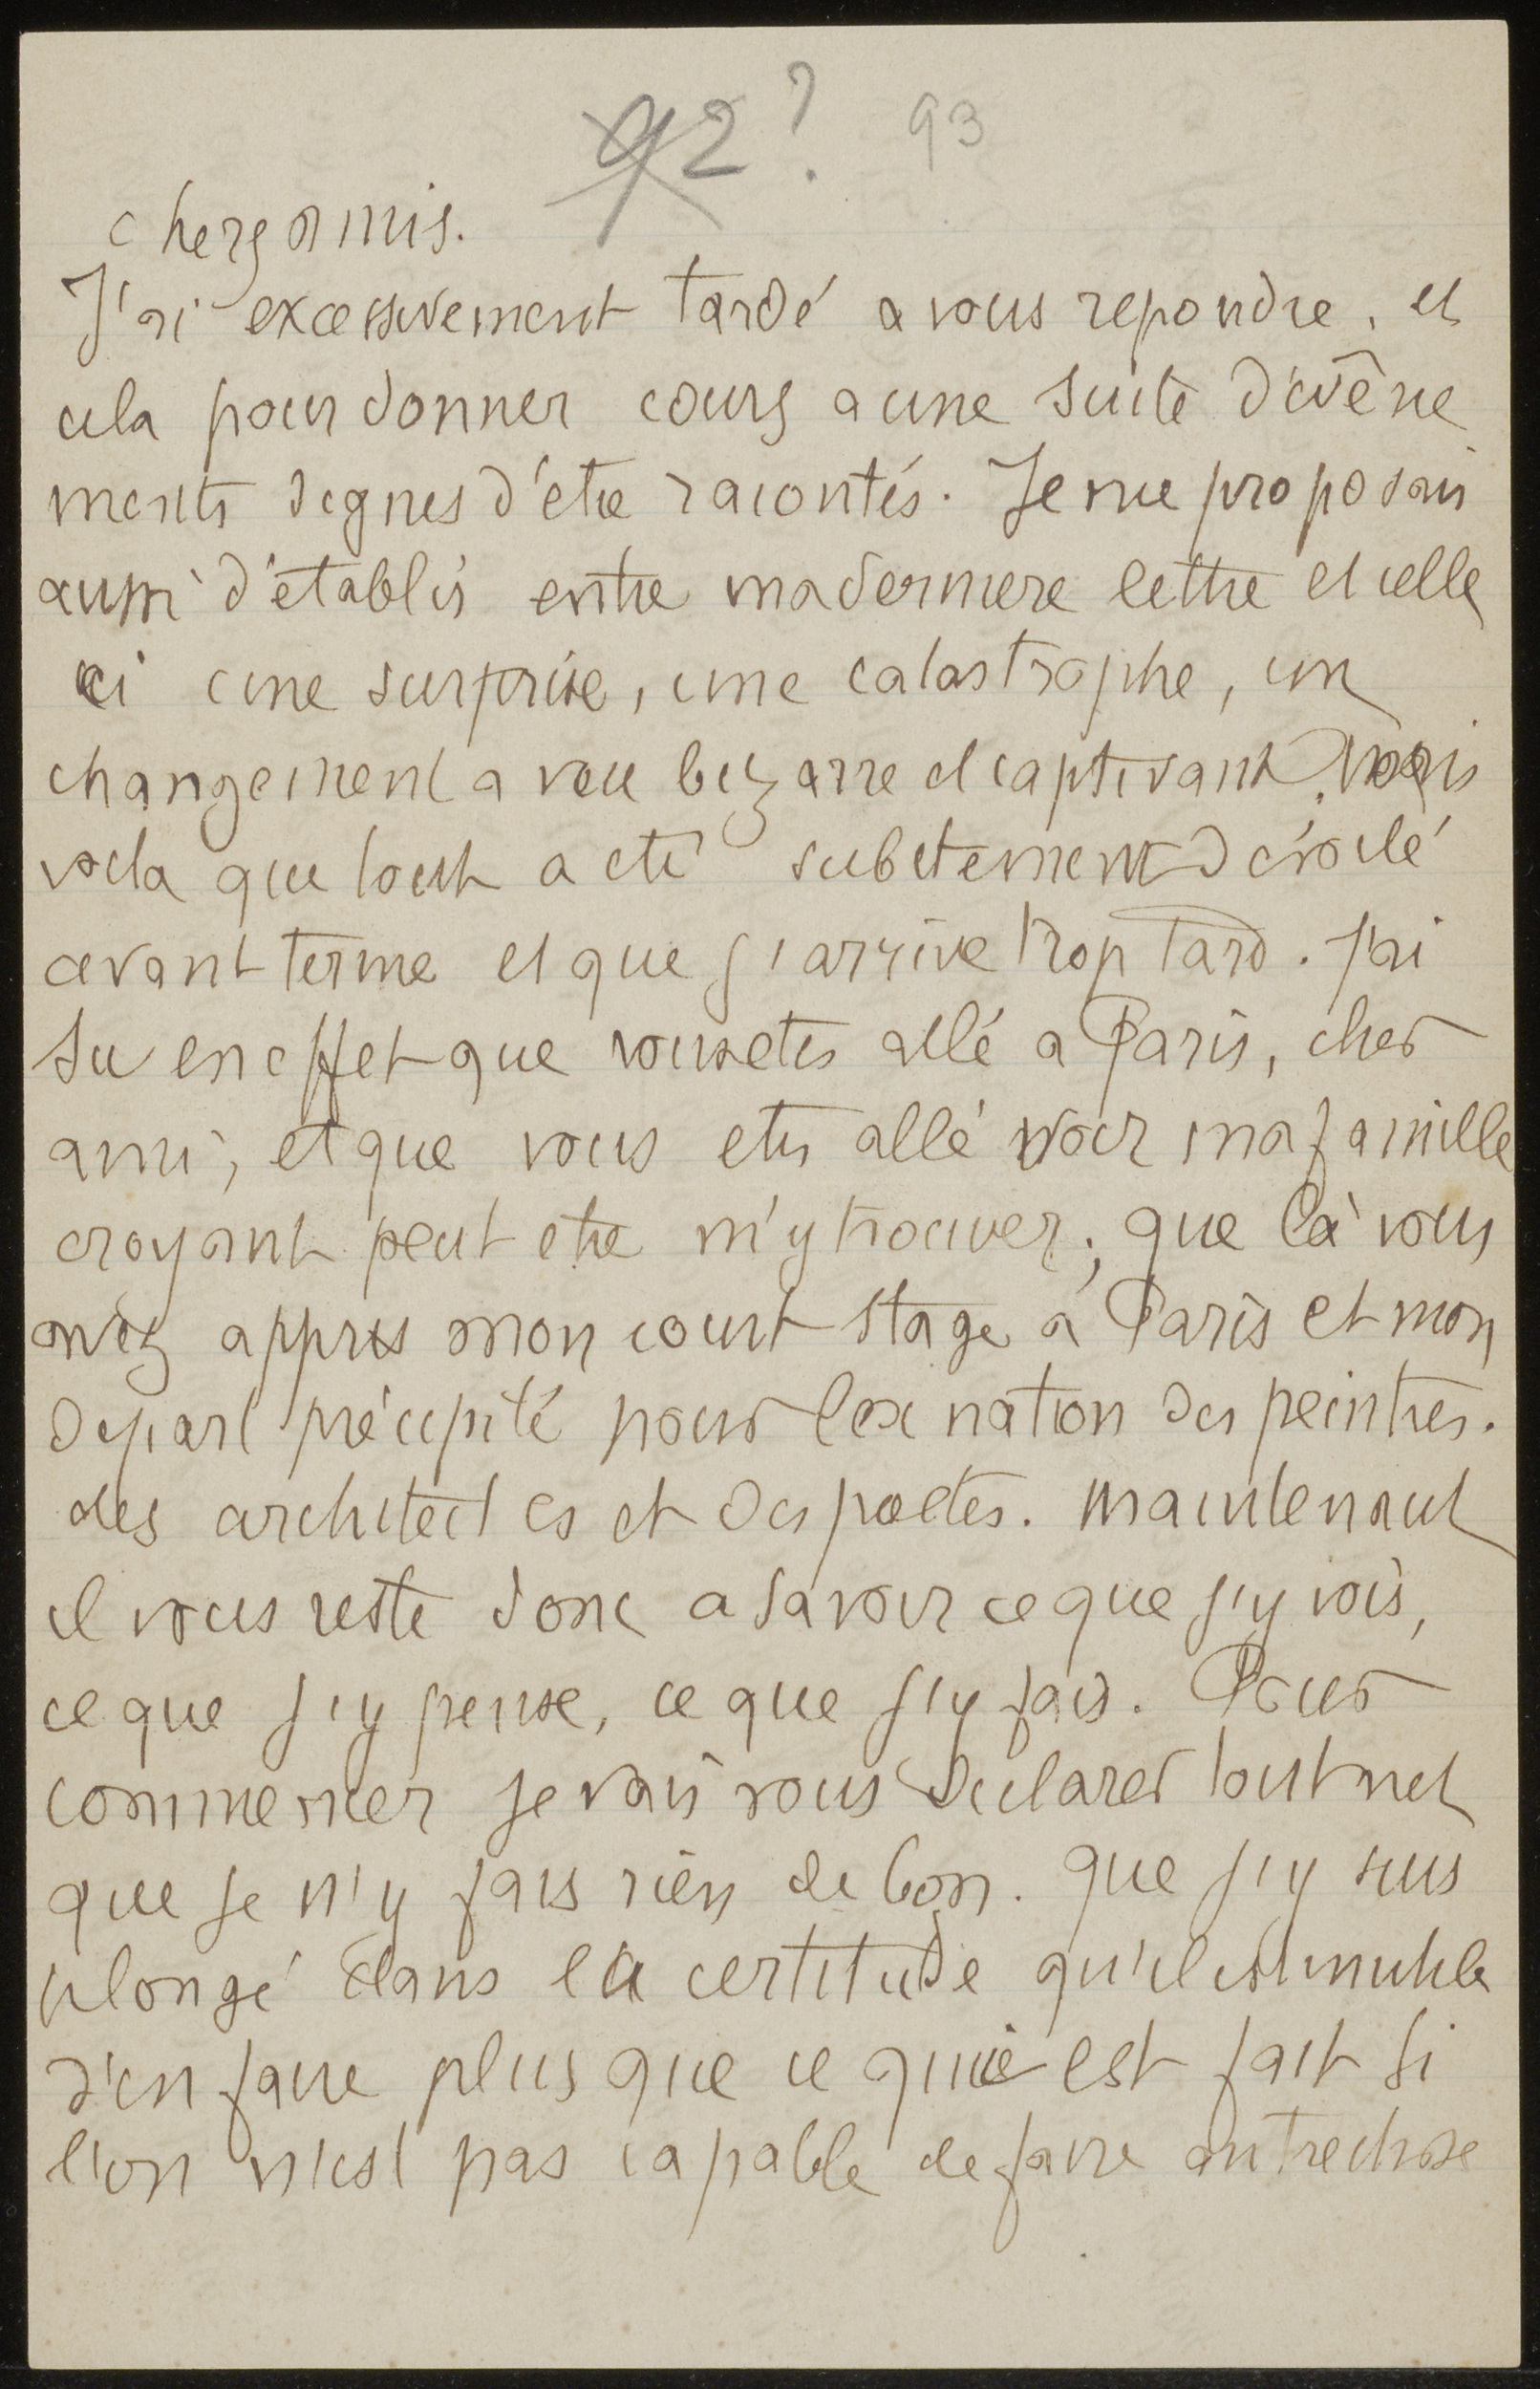 92? 93
chers amis.
J'ai excessivement tardé a vous repondre, et
cela pour donner cours a une suite d'évêne
ments dignes d'etre racontés. Je me proposais
aussi d'établir entre ma derniere lettre et celle
ci une surprise, une catastrophe, un
changement a vue bizarre et captivant. Mais
voila que tout a eté subitement dévoilé
avant terme et que j'arrive trop tard. J'ai
su en effet que vous etes allé a Paris, cher
ami, et que vous etes allé voir ma famille
croyant peut etre m'y trouver; que là vous
avez appris mon court stage à Paris et mon
depart précipité pour l'ex nation des peintres.
des architectes et des poetes. Maintenant
il vous reste donc a savoir ce que j'y vois,
ce que j'y pense, ce que j'y fais. Pour
commencer je vais vous declarer tout net
que je n'y fais rien de bon. que j'y suis
plongé dans la certitude qu'il est inutile
d'en faire plus que ce qui est fait si
l'on n'est pas capable de faire autre chose